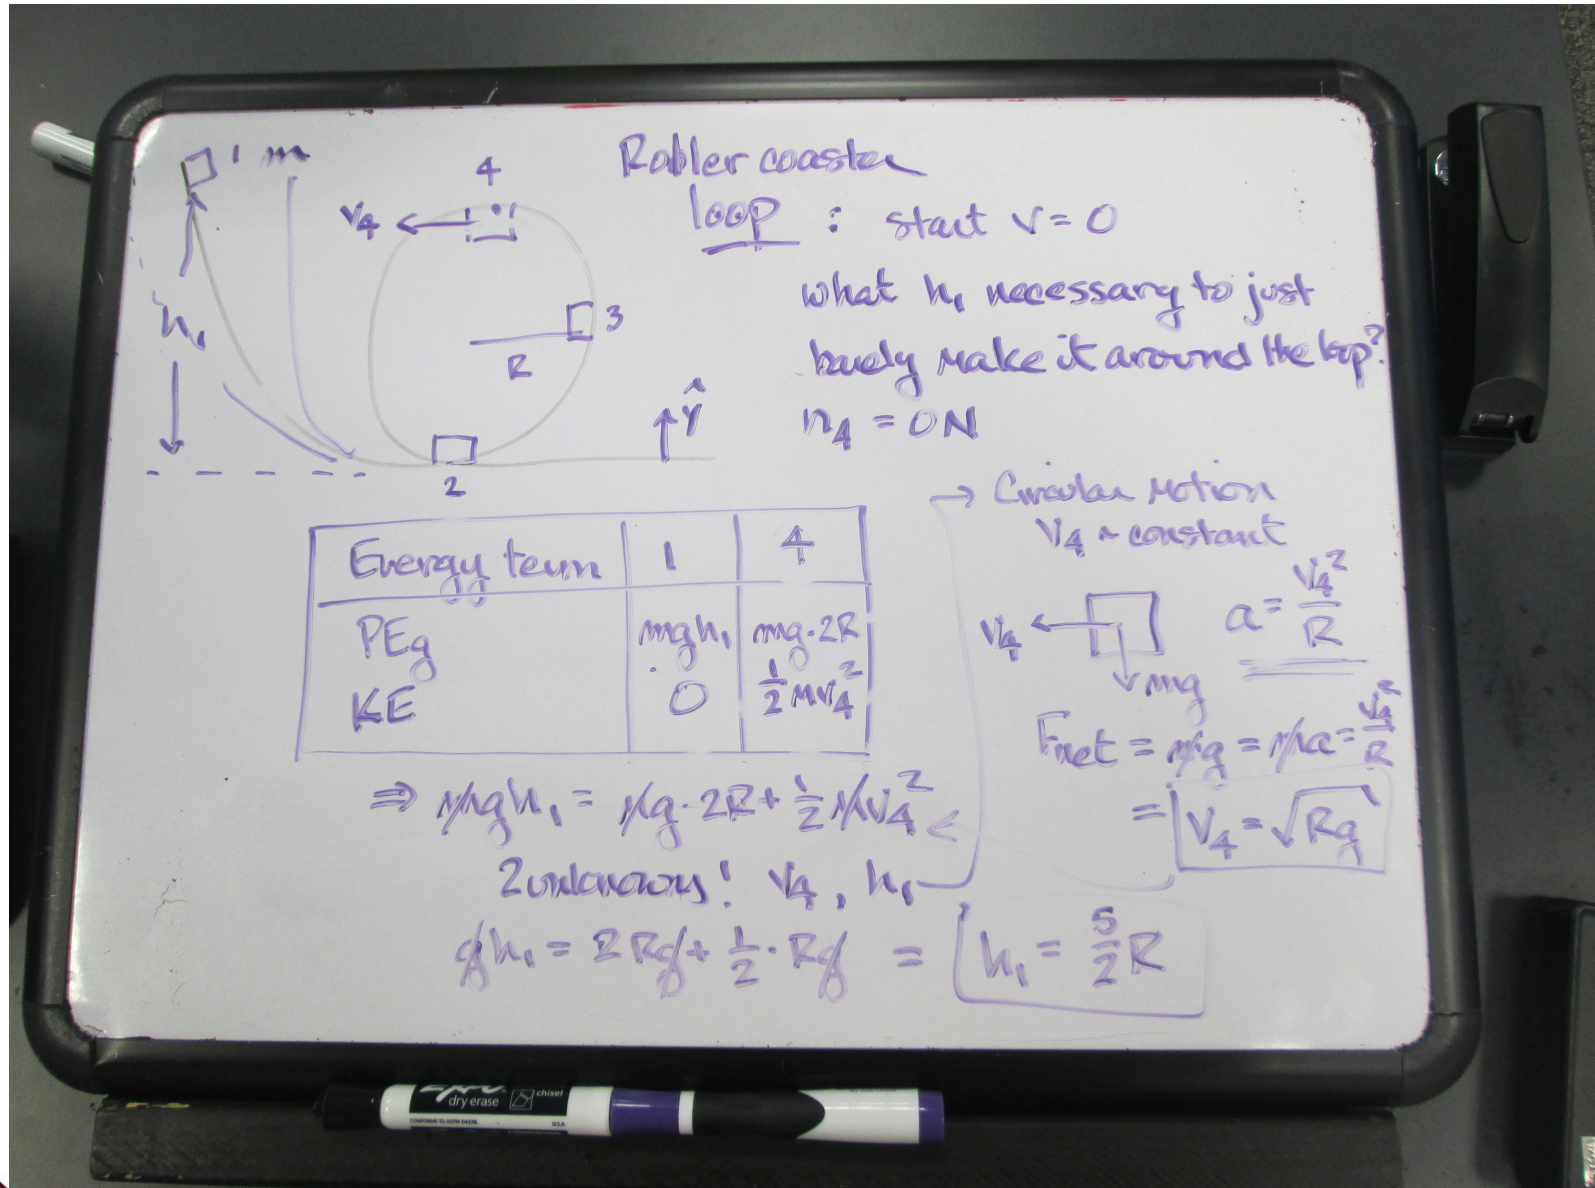 1 m
4
V₄
h₁
3
R
ŷ
2
Roller coaster
loop : start v = 0
what h₁ necessary to just
barely make it around the loop?
n₄ = 0N
Energy term 1 4
PEg mgh₁ mg·2R
KE 0 ½mv₄²
⇒ mgh₁ = mg·2R + ½mv₄²
2 unknowns! v₄, h₁
gh₁ = 2Rg + ½·Rg = h₁ = 5/2 R
→ Circular Motion
V₄ ~ constant
V₄ mg
a = V₄²/R
Fnet = mg = ma = V₄²/R
= V₄ = √Rg
EXPO
dry erase
chisel
CONFORMS TO ASTM D4236
USA